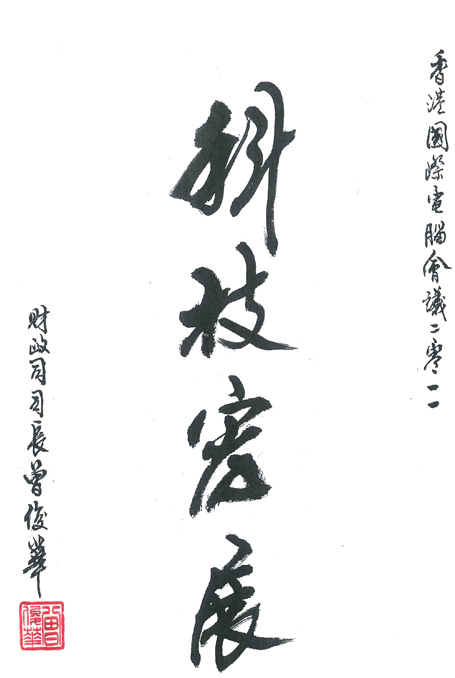 香港國際電腦會議二零一一
科技宏展
財政司司長曾俊華
曾俊華